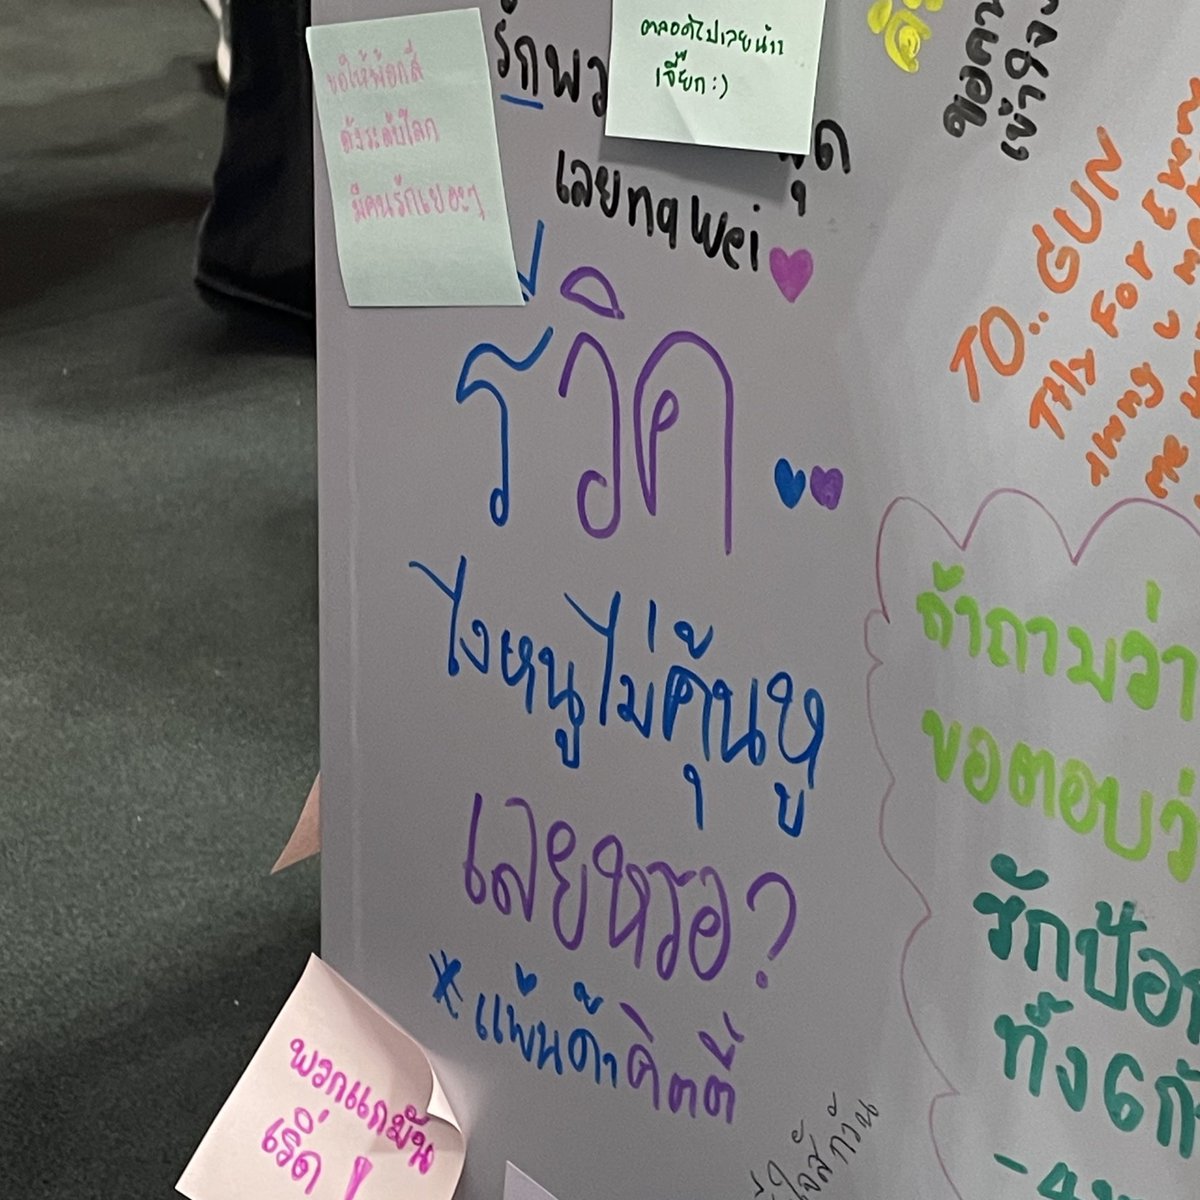 ขอให้พ้อกสี
ดังระดับโลก
มีคนรักเยอะๆ
รักพว
ตลอดไปเลยน้าา
เจี๊ยก:)
เลยnawei
รวิค
ไงหนูไม่คุ้นหู
เลยหรอ?
*แพ้นด้าคิตตี้
พวกแกมัน
เริ่ด!
ขอคว
เข้าใจ
TO.. GUN
Thly For Even
thing
me
ถ้าถามว่า
ขอตอบว่
รักป๊อ
ทั้ง6ก